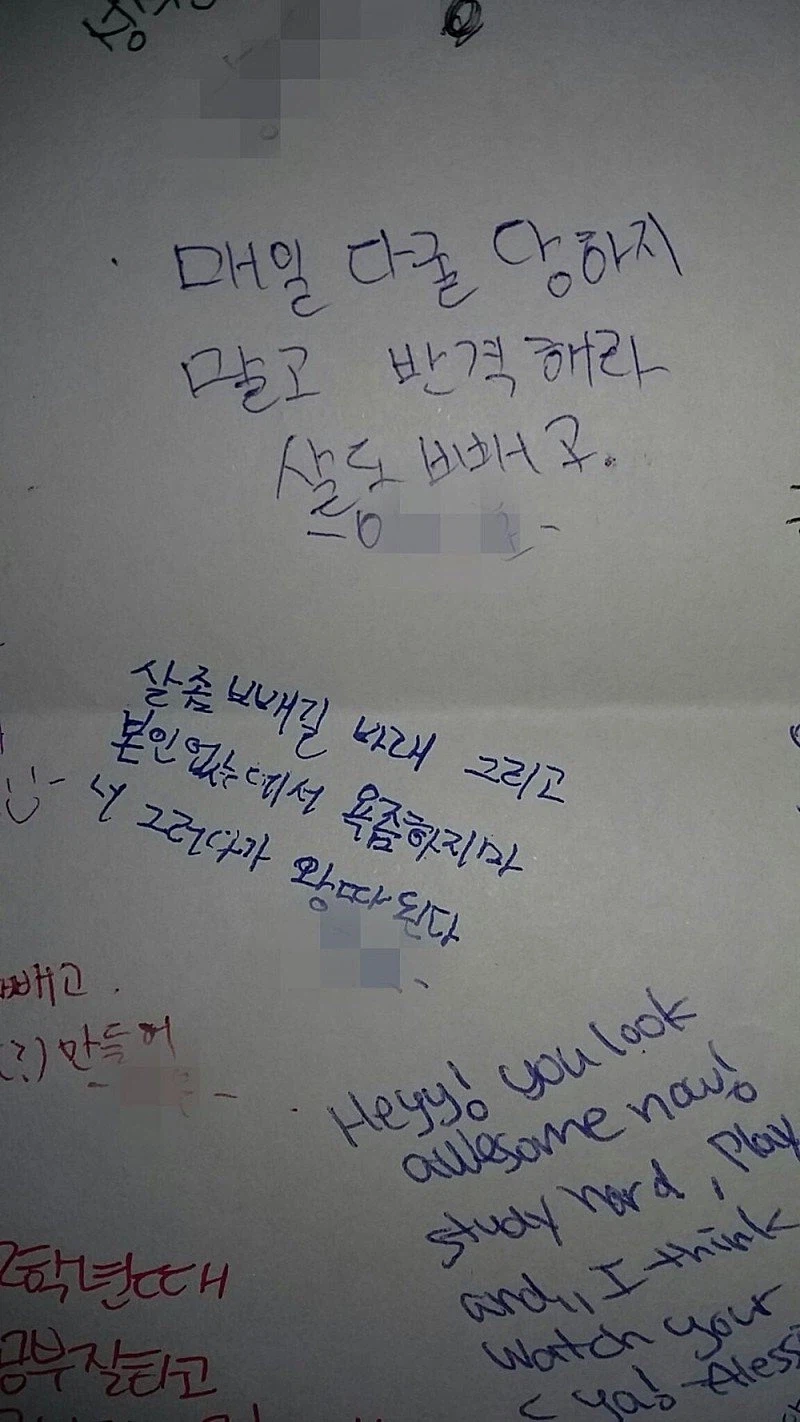 매일 다굴 당하지
말고 반격해라
살도 빼고.
살좀 빼길 바래 그리고
본인없는데서 욕좀하지마
너 그러다가 왕따된다
빼고.
(?) 만들어
Heyy! you look
awesome now!
study hard, play
and, I think
watch your
ya!
2학년때
공부 잘하고